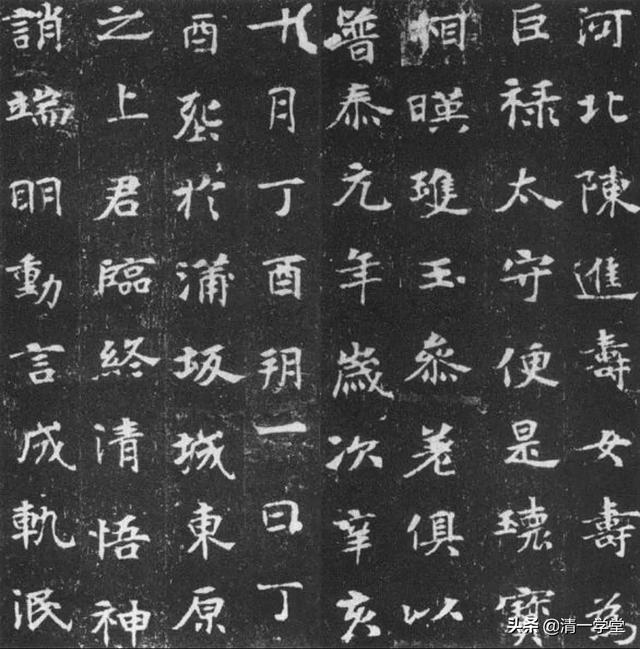 河北陳進壽女壽為
巨祿太守便是瓌寶
相暎瓊玉參差俱以
普泰元年歲次辛亥
十月丁酉朔一日丁
酉塟於蒲坂城東原
之上君臨終清悟神
誚端明動言成軌泯
头条 @清一学堂